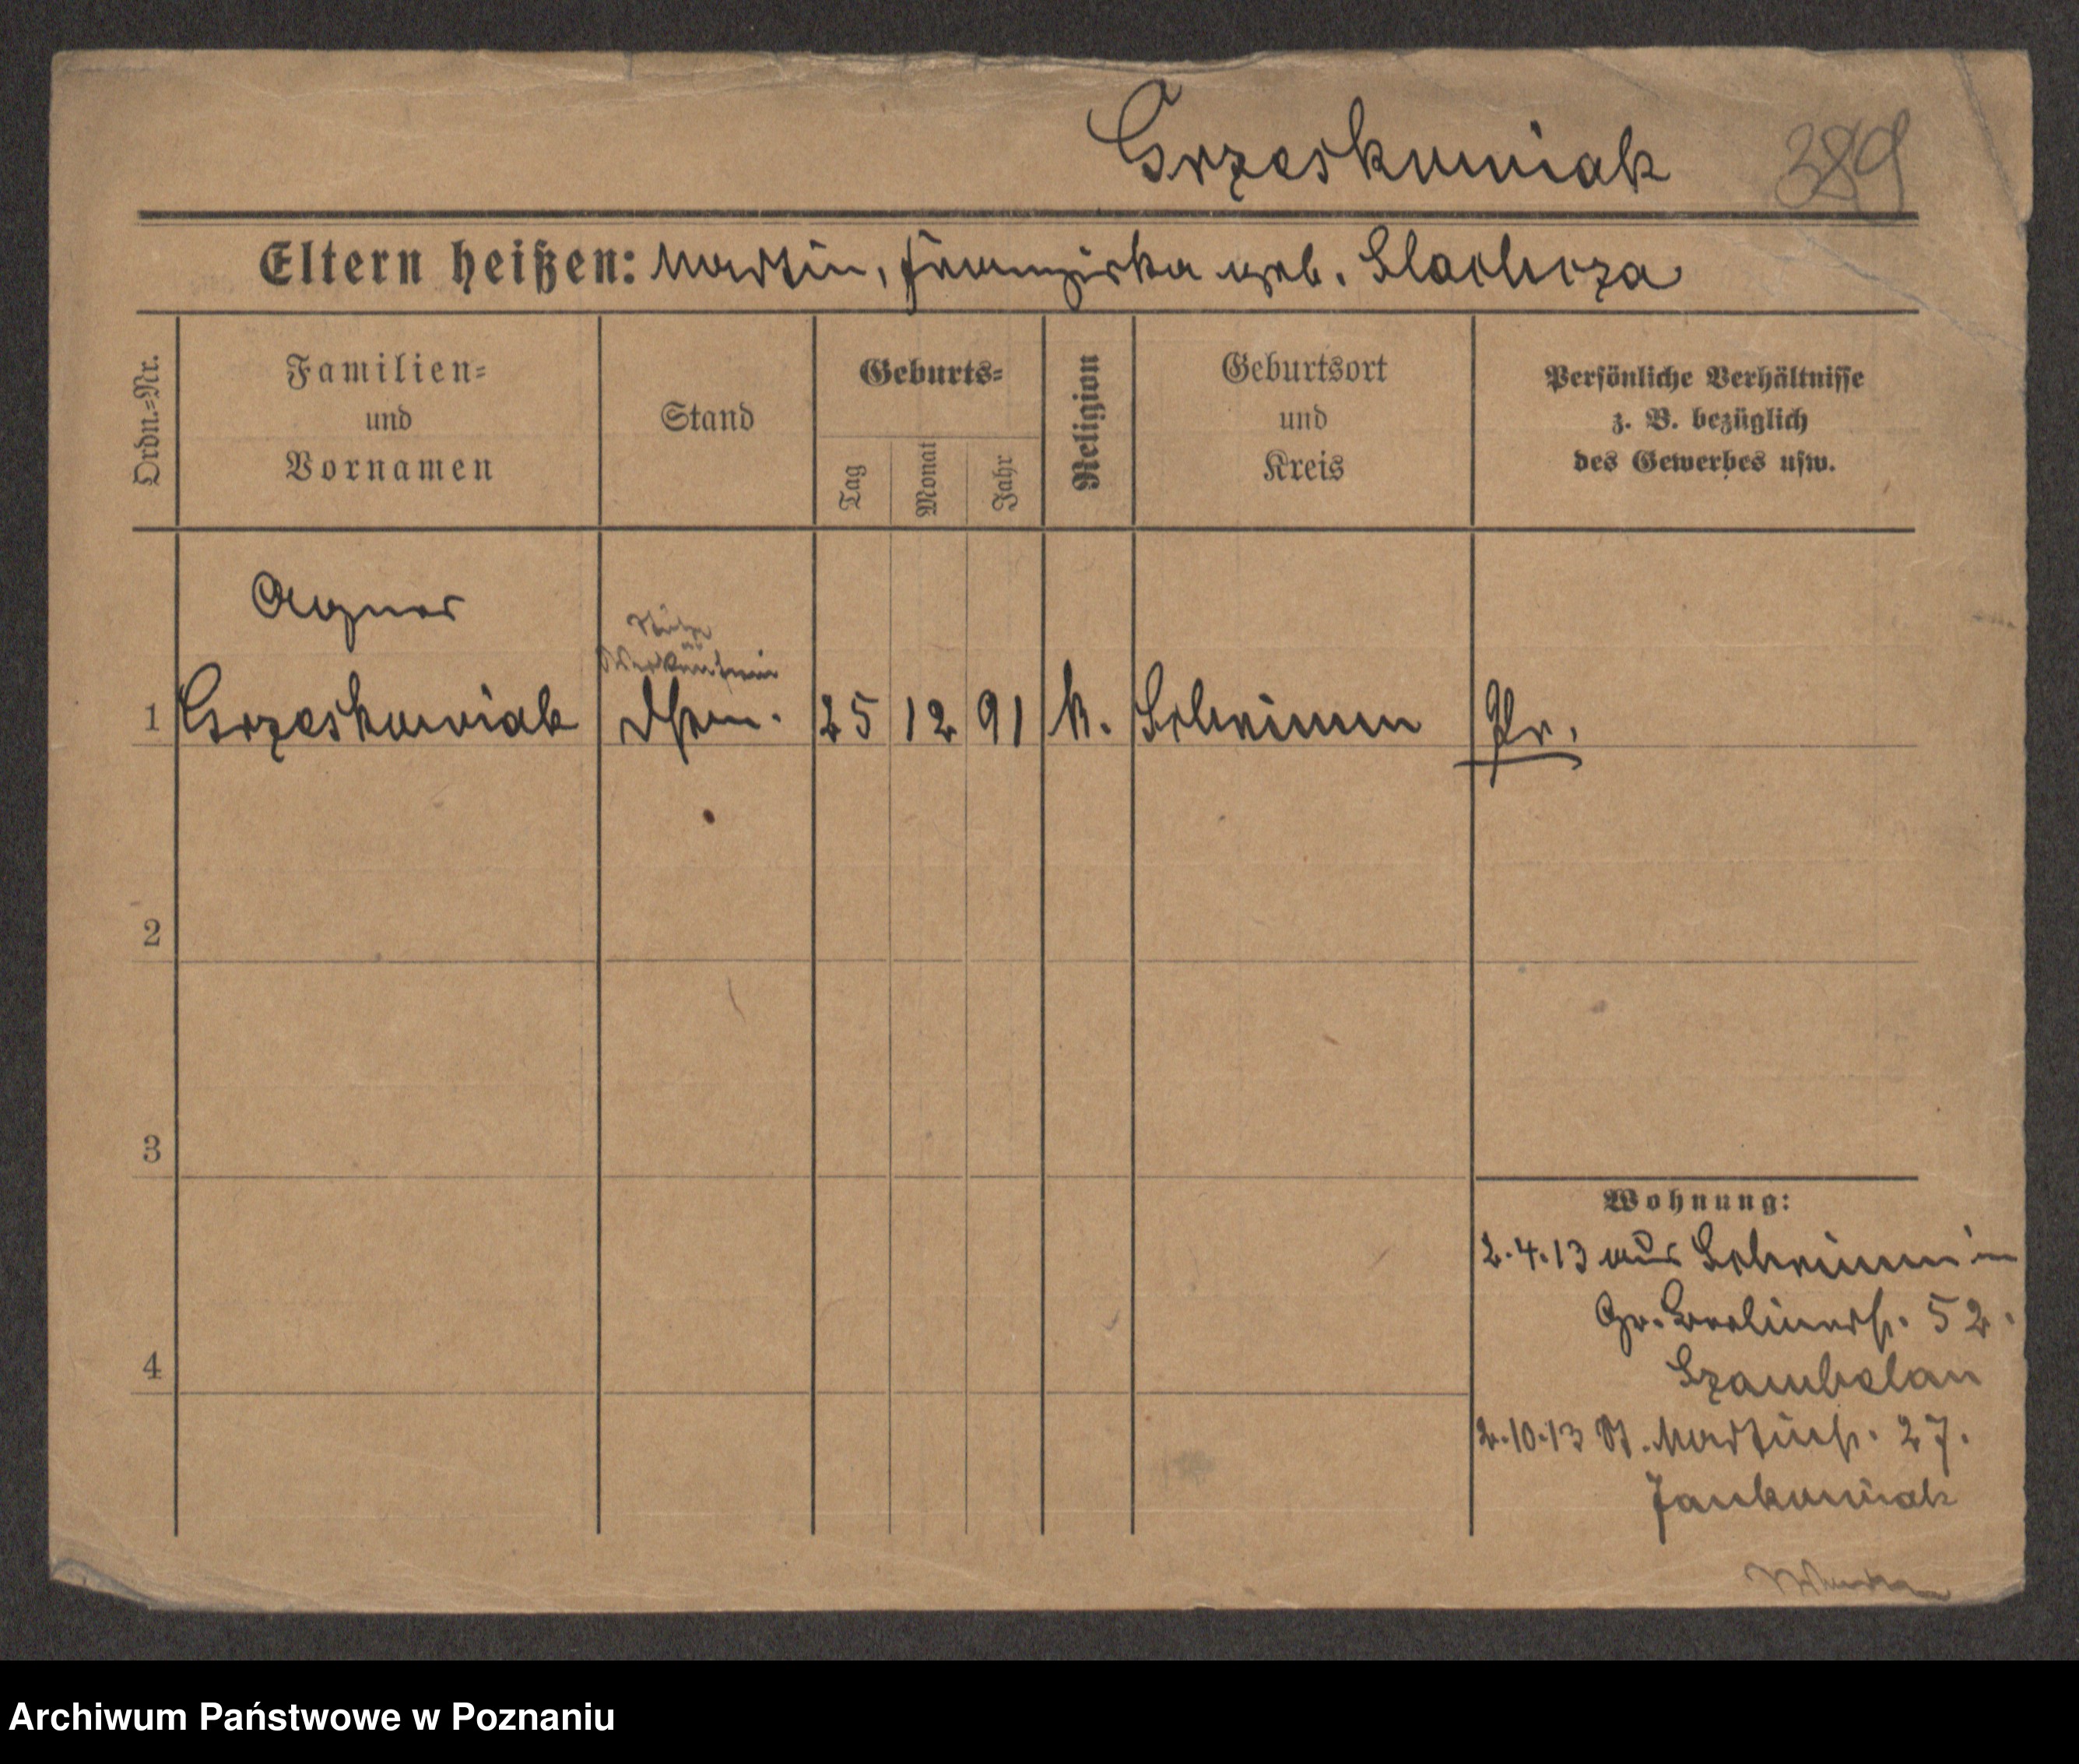 Grzeskowiak 389
Eltern heißen: Martin, Franziska geb. Stachoza
Ordn.=Nr.
Familien=
und
Vornamen
Stand
Geburts=
Tag
Monat
Jahr
Religion
Geburtsort
und
Kreis
Persönliche Verhältnisse
z. B. bezüglich
des Gewerbes usw.
Agnes
Stütze
1 Grzeskowiak 25 12 91 k. Schrimm Pr.
2
3
4
Wohnung:
2.4.13 aus Schrimm in
Gr. Berlinerstr. 52.
Szambelan
2.10.13 St. Martinstr. 27.
Jankowiak
Archiwum Państwowe w Poznaniu